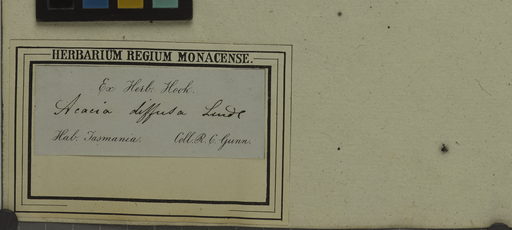 HERBARIUM REGIUM MONACENSE.
Ex Herb. Hook.
Acacia diffusa Lindl
Hab. Tasmania. Coll. R. C. Gunn.